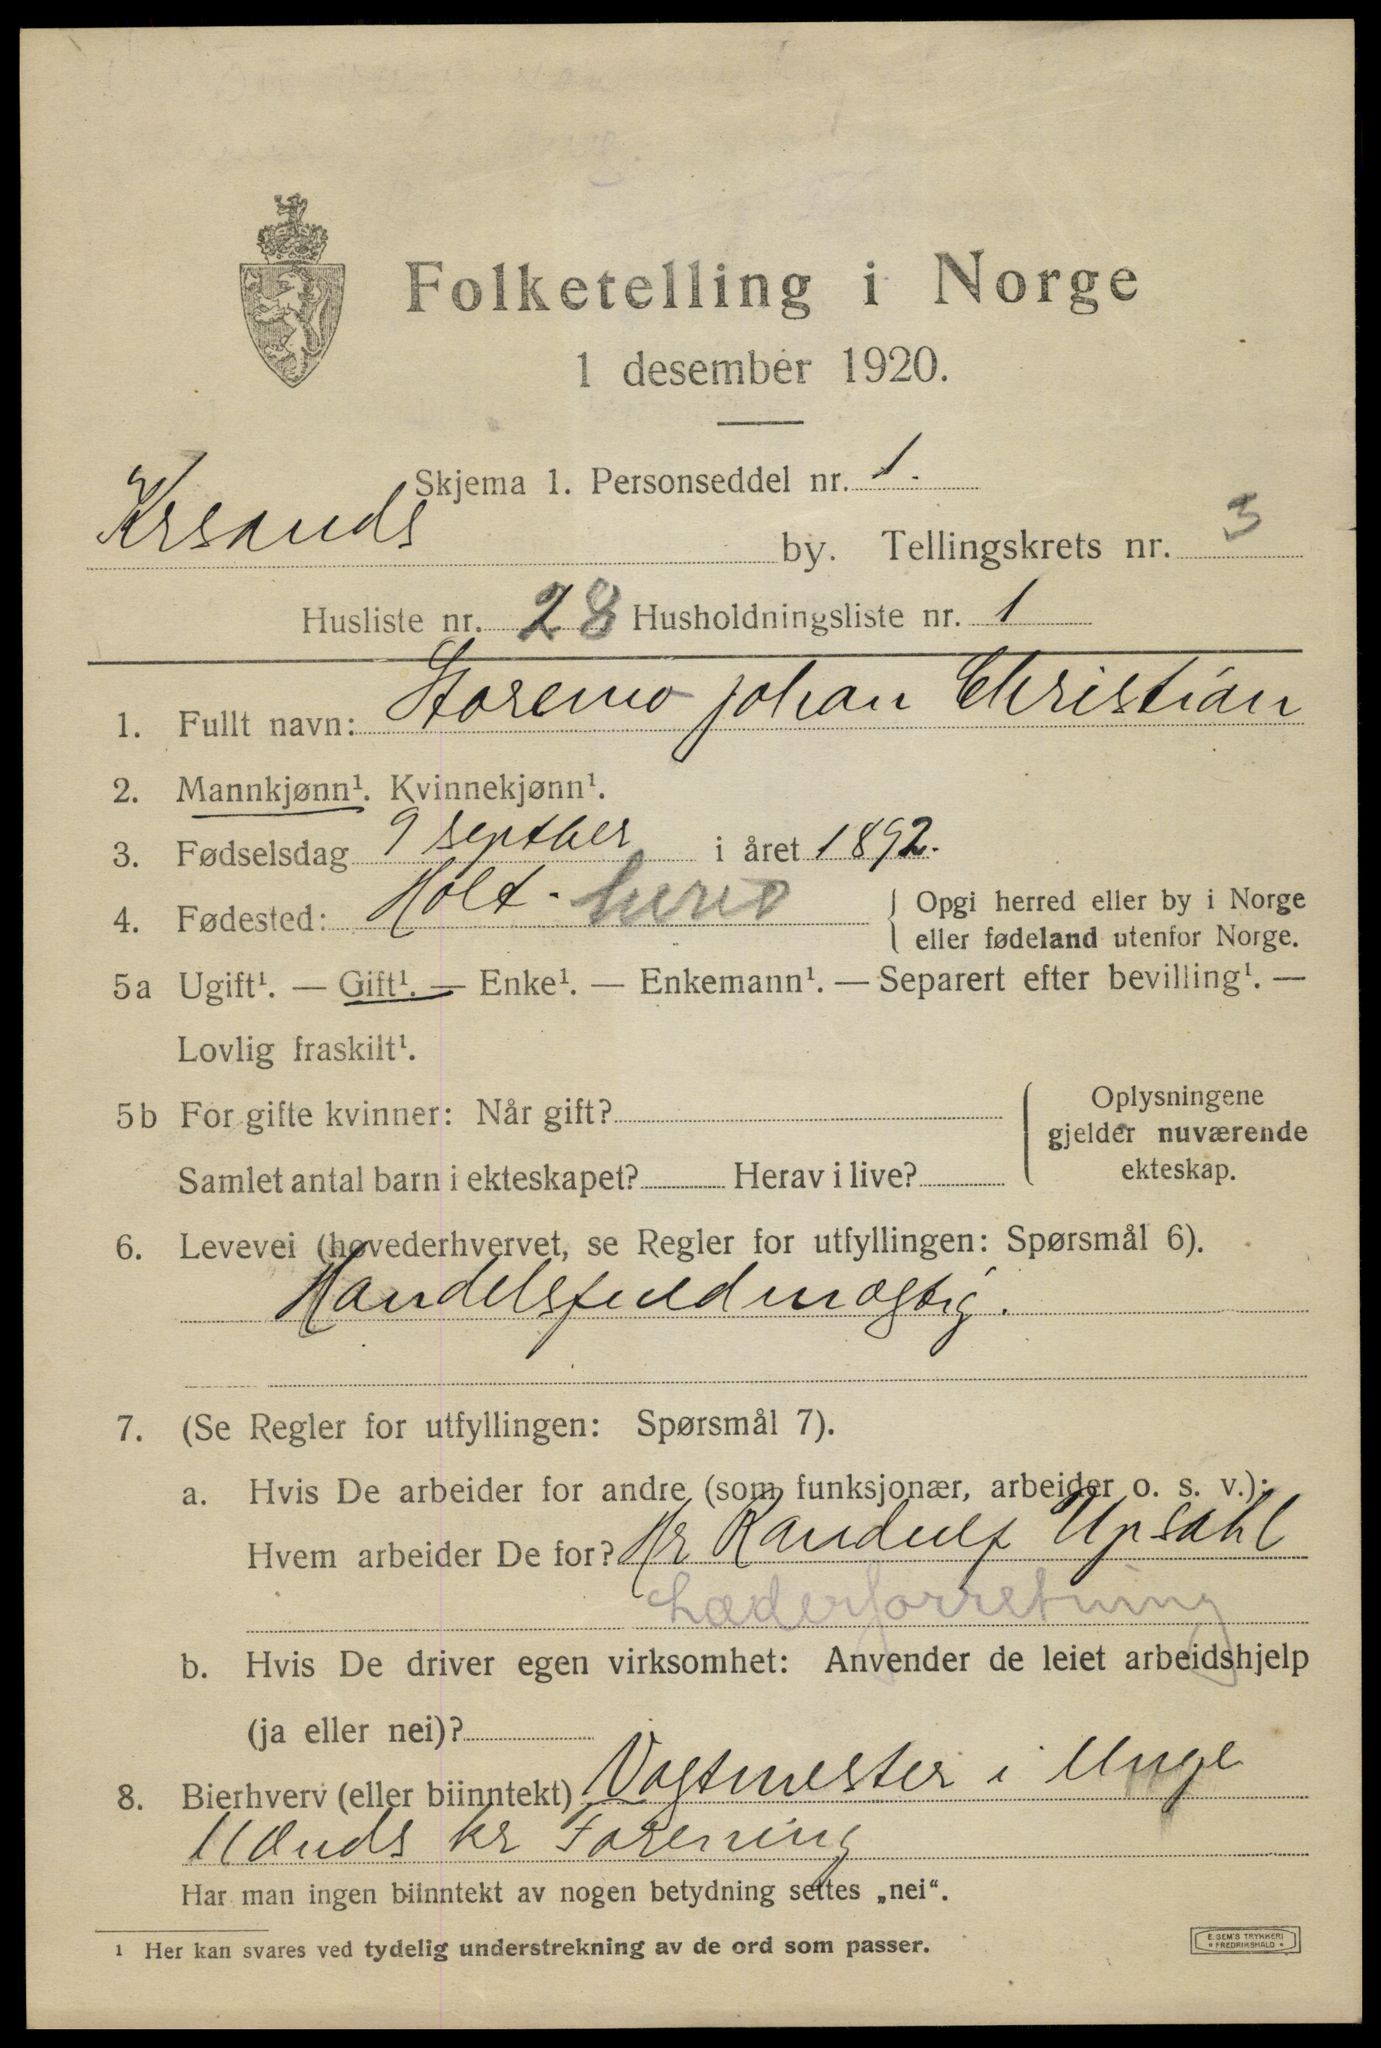 Folketelling i Norge
1 desember 1920.
Skjema 1. Personseddel nr. 1.
Krsands by. Tellingskrets nr. 3
Husliste nr. 28 Husholdningsliste nr. 1
1. Fullt navn: Storemo Johan Christian
2. Mannkjønn¹. Kvinnekjønn¹.
3. Fødselsdag 9 septber i året 1892.
4. Fødested: Holt - herred { Opgi herred eller by i Norge
eller fødeland utenfor Norge.
5a Ugift¹. — Gift¹. — Enke¹. — Enkemann¹. — Separert efter bevilling¹. —
Lovlig fraskilt¹.
5b For gifte kvinner: Når gift?
Samlet antal barn i ekteskapet? Herav i live?
{ Oplysningene
gjelder nuværende
ekteskap.
6. Levevei (hovederhvervet, se Regler for utfyllingen: Spørsmål 6).
Handelsfuldmægtig.
7. (Se Regler for utfyllingen: Spørsmål 7).
a. Hvis De arbeider for andre (som funksjonær, arbeider o. s. v.):
Hvem arbeider De for? Hr Randulf Upsahl
Læderforretning
b. Hvis De driver egen virksomhet: Anvender de leiet arbeidshjelp
(ja eller nei)?
8. Bierhverv (eller biinntekt) Vagtmester i Unge
Mænds kr Forening
Har man ingen biinntekt av nogen betydning settes „nei“.
¹ Her kan svares ved tydelig understrekning av de ord som passer.
E. SEM'S TRYKKERI
• FREDRIKSHALD •